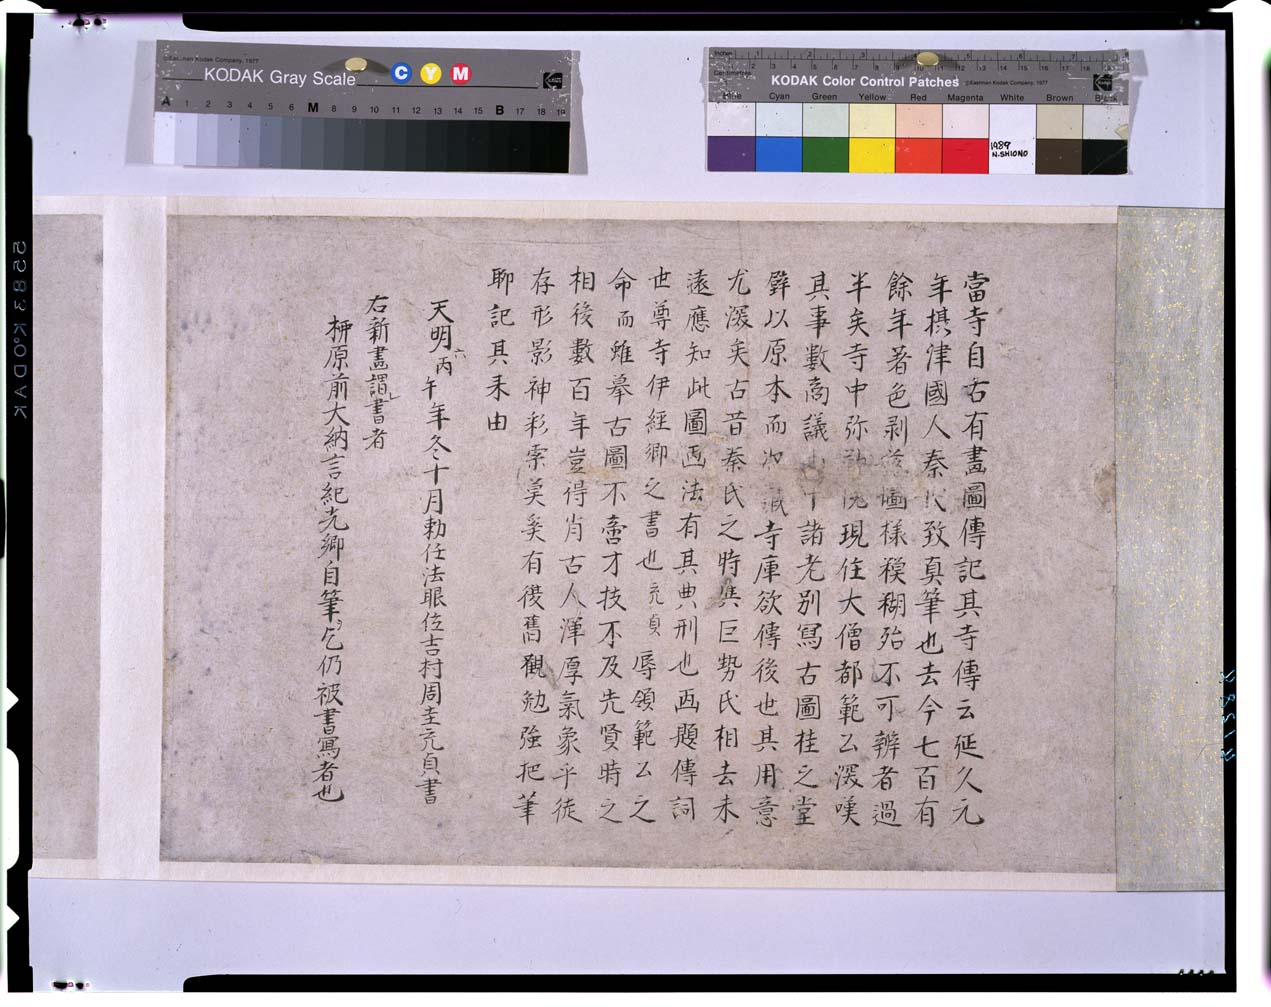 ©Eastman Kodak Company, 1977
KODAK Gray Scale
C Y M
A 1 2 3 4 5 6 M 8 9 10 11 12 13 14 15 B 17 18 19
Inches 1 2 3 4 5 6 7 8
Centimetres 2 3 4 5 6 7 8 9 10 11 12 13 14 15 16 17 18 19
KODAK Color Control Patches ©Eastman Kodak Company, 1977
Blue Cyan Green Yellow Red Magenta White Brown Black
1989
N.SHIONO
5583 KODAK
當寺自古有畫圖傳記其寺傳云延久元
年摂津國人秦致真筆也去今七百有
餘年著色剥落圖様糢糊殆不可辨者過
半矣寺中弥現住大僧都範公深嘆
其事數商議諸老別寫古圖桂之堂
壁以原本而次蔵寺庫欲傳後也其用意
尤深矣古昔秦氏之時與巨勢氏相去未
遠應知此圖画法有其典刑也画題傳詞
世尊寺伊經卿之書也充貞辱領範公之
命而雖摹古圖不啻才技不及先賢時之
相後數百年豈得肖古人渾厚氣象乎徒
存形影神彩索莫矣有復舊觀勉強把筆
聊記其来由
天明六丙午年冬十月勅任法眼位吉村周圭充貞書
右新畫謂書者
柳原前大納言紀光卿自筆乞仍被書寫者也